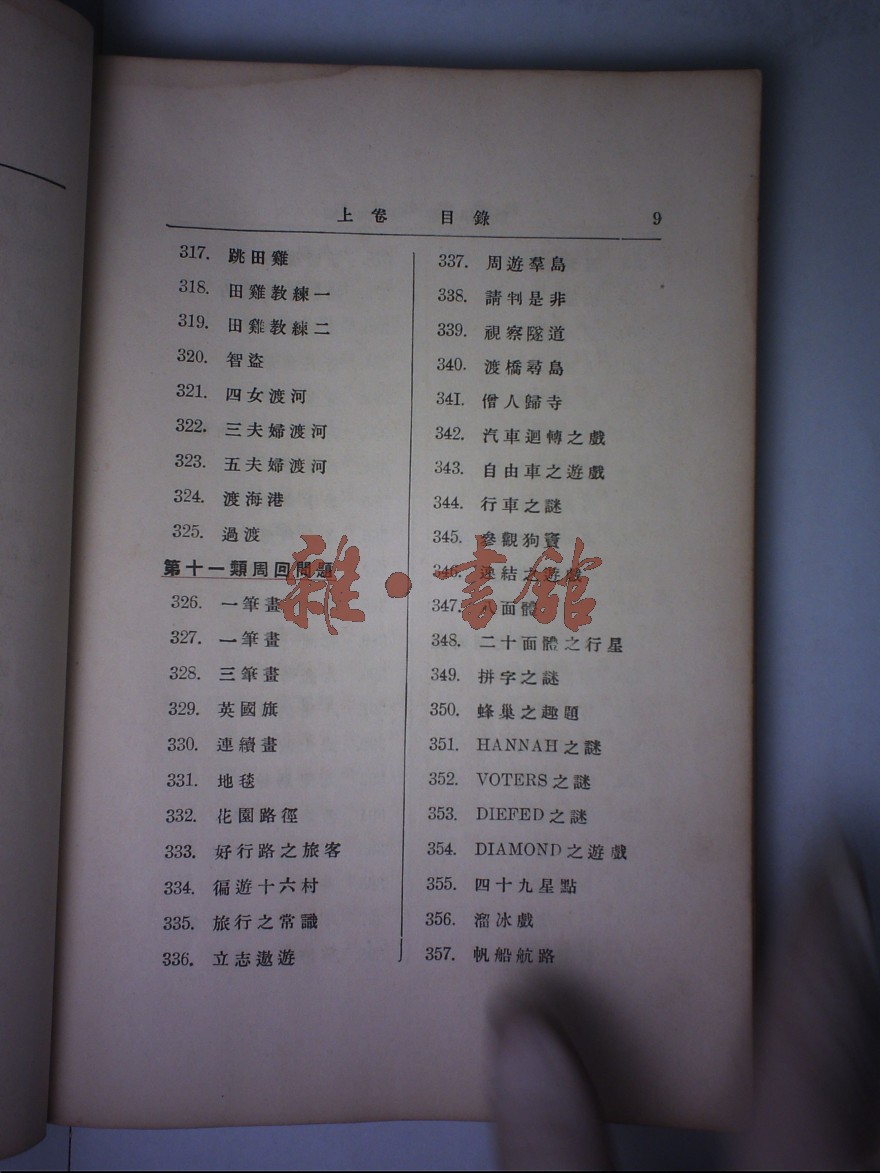 上卷 目錄 9
317. 跳田雞
318. 田雞教練一
319. 田雞教練二
320. 智盜
321. 四女渡河
322. 三夫婦渡河
323. 五夫婦渡河
324. 渡海港
325. 過渡
第十一類周回問題
326. 一筆畫
327. 一筆畫
328. 三筆畫
329. 英國旗
330. 連續畫
331. 地毯
332. 花園路徑
333. 好行路之旅客
334. 徧遊十六村
335. 旅行之常識
336. 立志遨遊
337. 周遊羣島
338. 請判是非
339. 視察隧道
340. 渡橋尋島
341. 僧人歸寺
342. 汽車迴轉之戲
343. 自由車之遊戲
344. 行車之謎
345. 參觀狗竇
346. 連結之遊戲
347. 八面體
348. 二十面體之行星
349. 拼字之謎
350. 蜂巢之趣題
351. HANNAH之謎
352. VOTERS之謎
353. DIEFED之謎
354. DIAMOND之遊戲
355. 四十九星點
356. 溜冰戲
357. 帆船航路
雜·書館